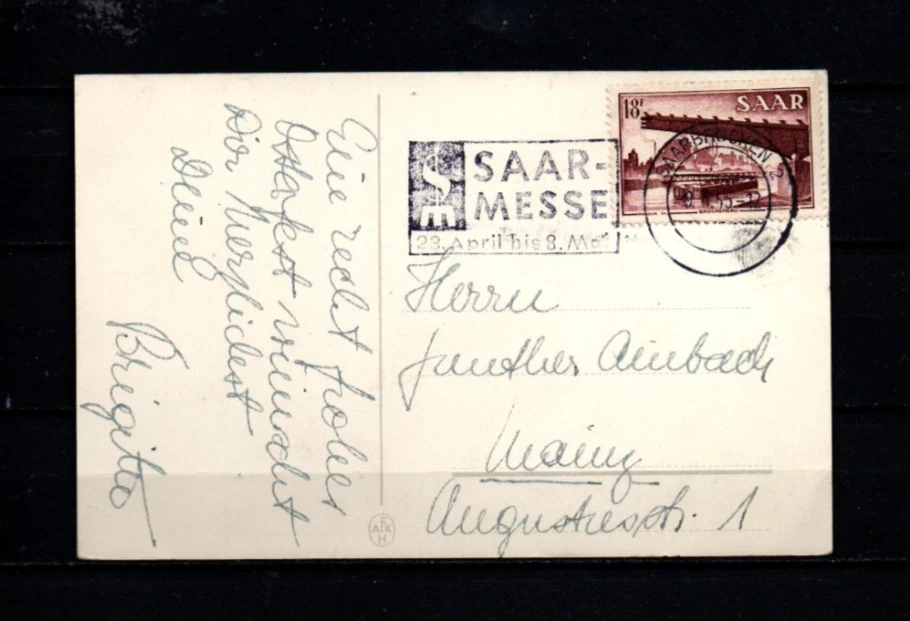 Eine recht frohes
Osterfest wünscht
Dir Herzlichst
Deine
Brigitte
SAAR-
MESSE
23. April bis 8. Mai
18F
SAAR
SAARBRÜCKEN 2
Herrn
Günther Ambach
Mainz
Augustusstr. 1